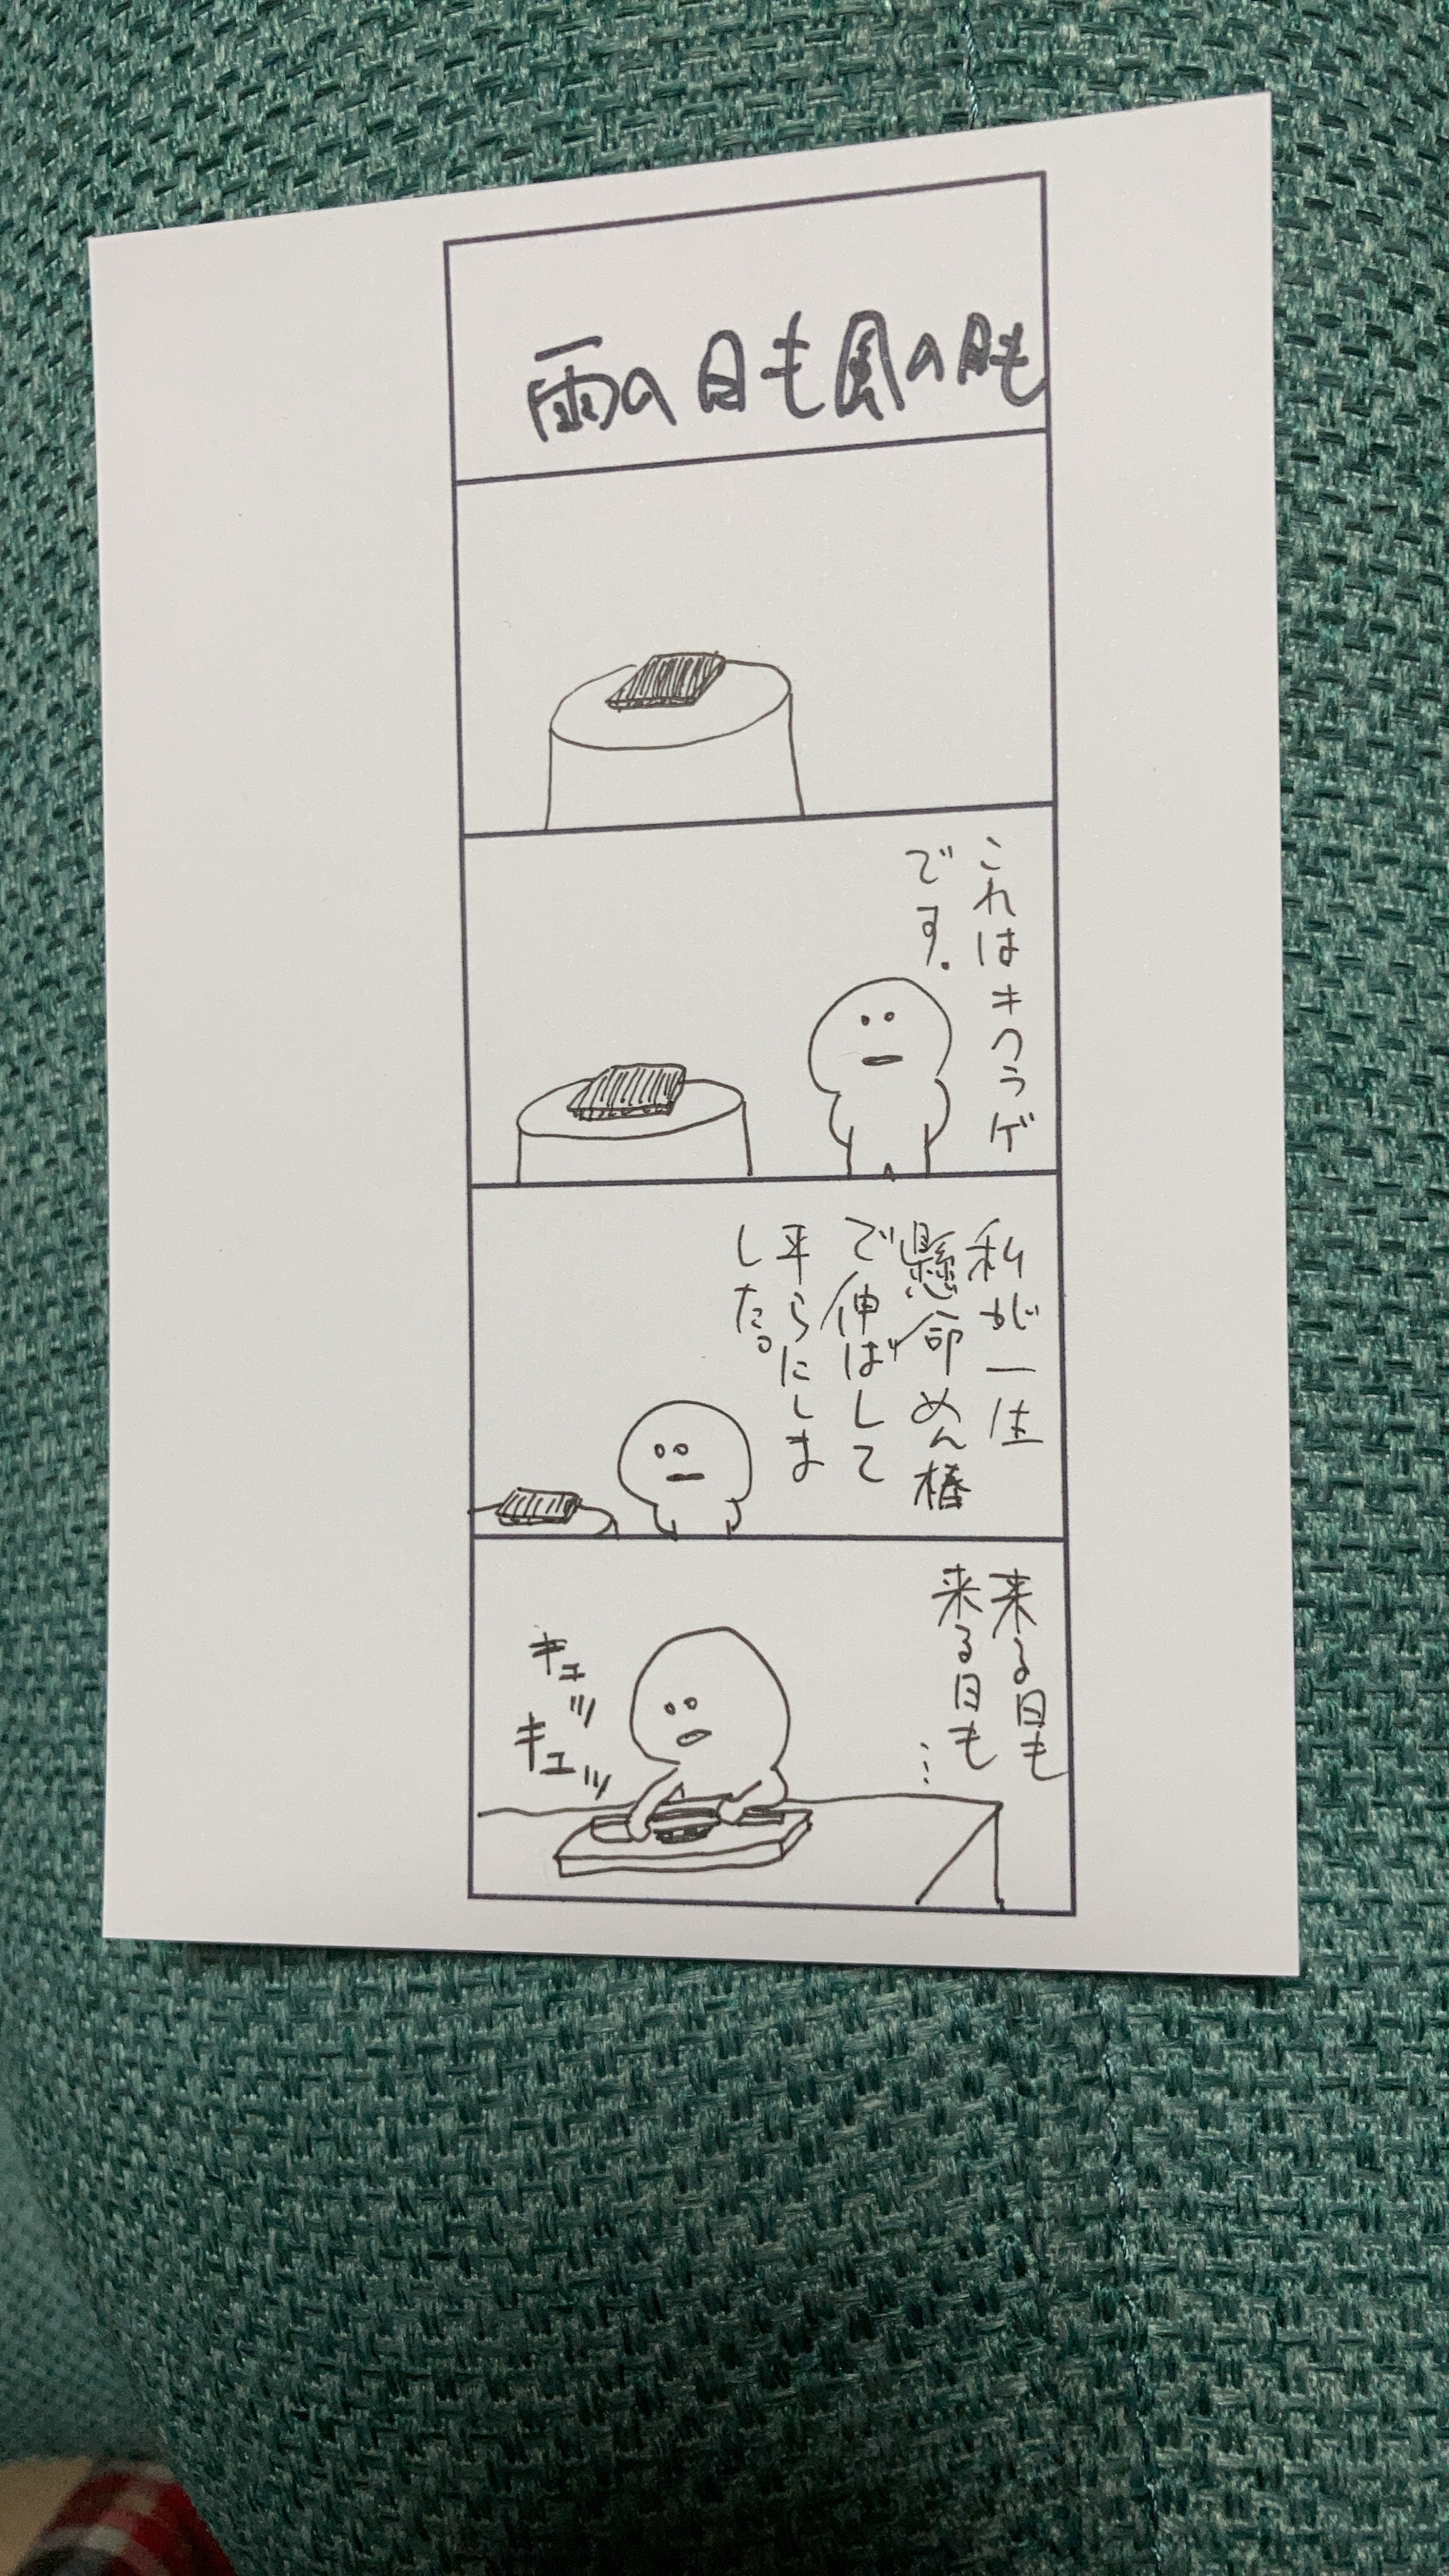 雨の日も風の日も
これはキクラゲ
です.
私が一生
懸命めん棒
で伸ばして
平らにしま
した。
来る日も
来る日も
…
キュッ
キュッ